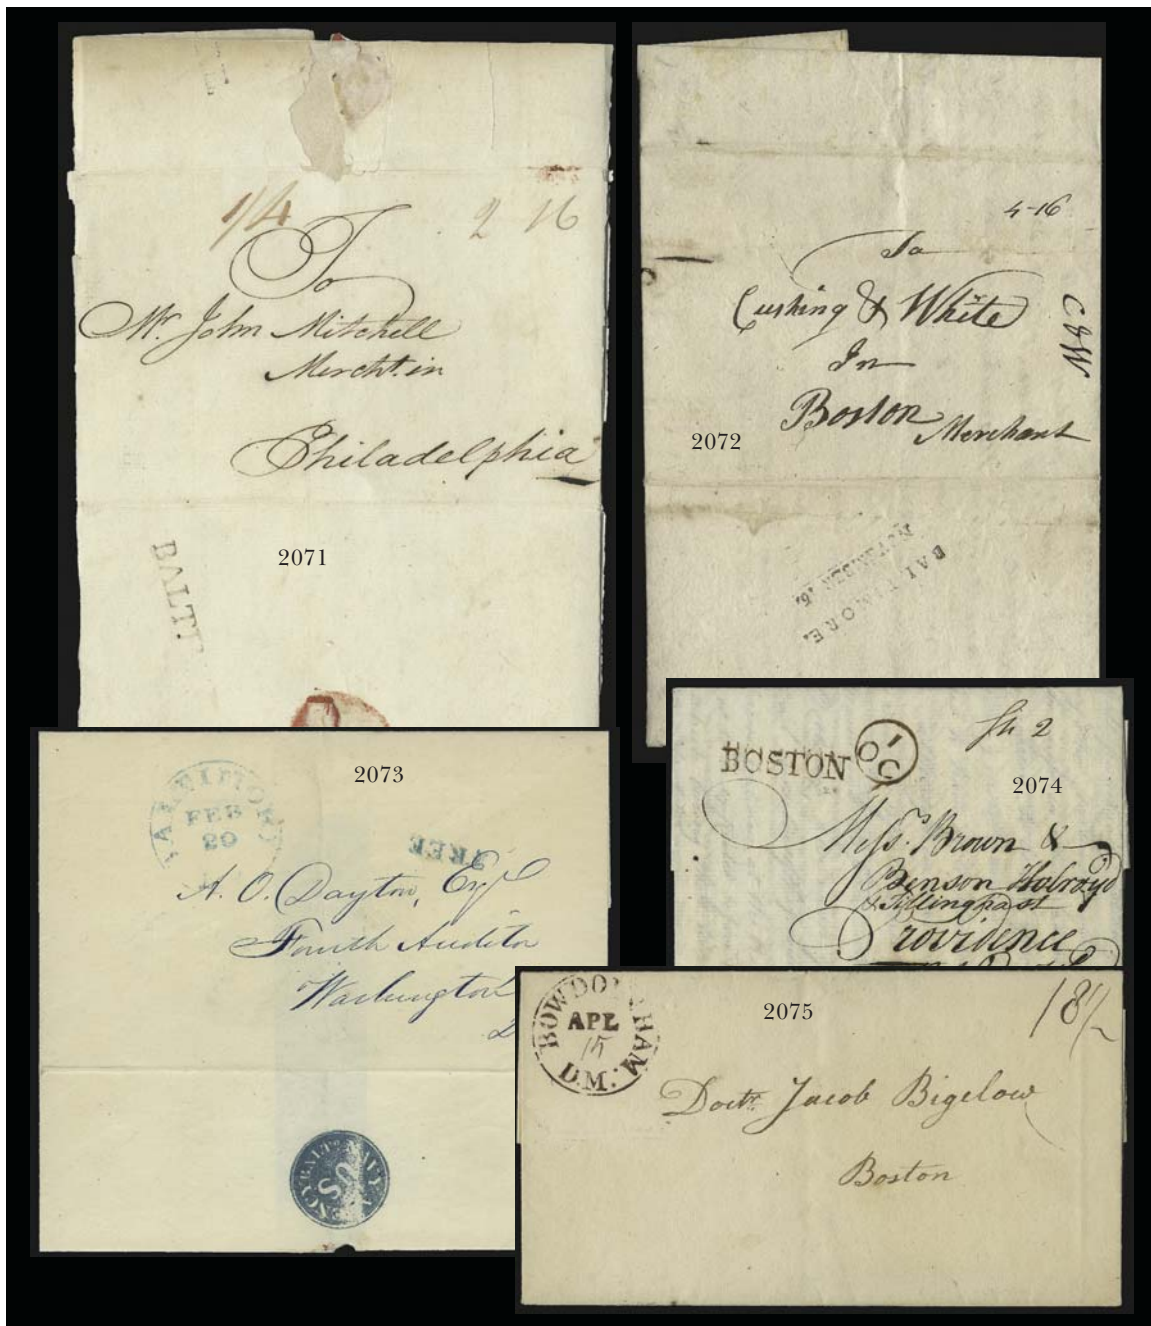 1/4 2 16
To
Mr. John Mitchell
Mercht. in
Philadelphia
BALTI.
2071
4-16
To
Cushing & White
In
Boston
Merchant
C&W
2072
BALTIMORE.
NOVEMBER 16.
2073
BALTIMORE
FEB
29
FREE
A. O. Dayton, Esqr
Fourth Auditor
Washington
D
NAVY AGENCY BALTo
US
Sh 2
BOSTON 1 OC
2074
Messrs. Brown &
Benson Holroyd
& Tillinghast
Providence
2075
BOWDOINHAM
APL
15
D.M.
18 1/2
Doctr Jacob Bigelow
Boston